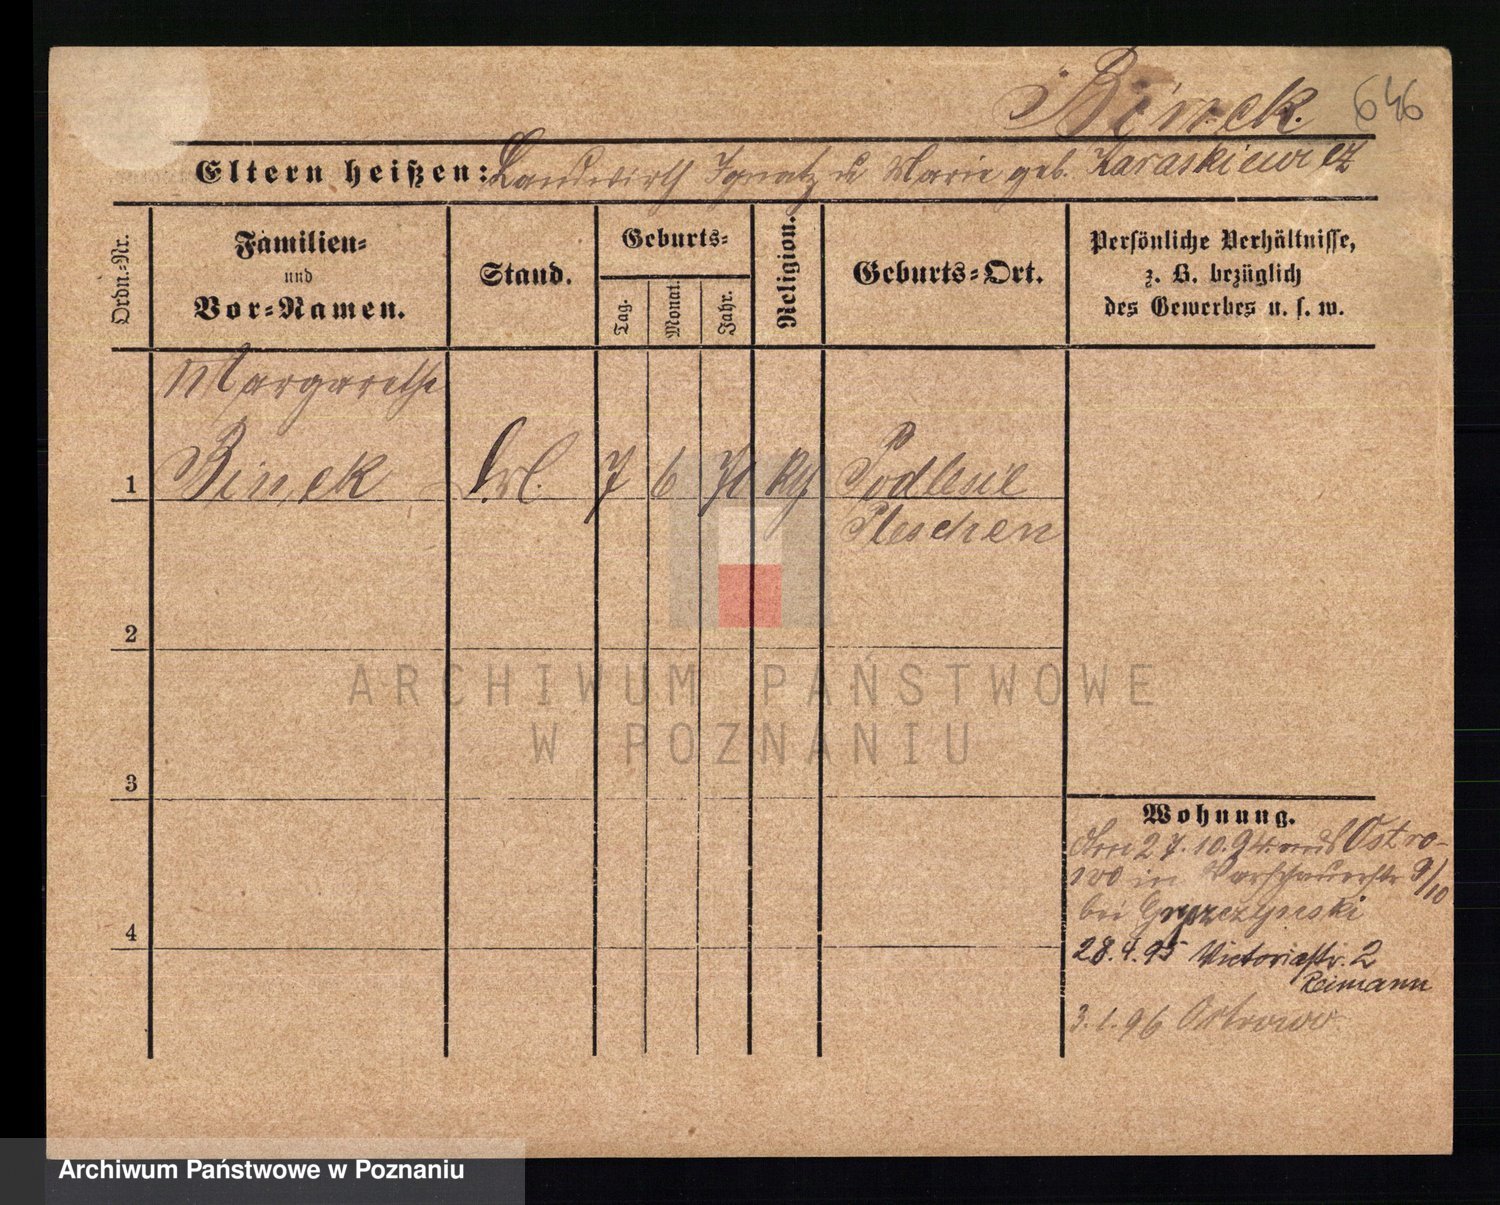 Binek. 646
Eltern heißen: Landwirth Ignatz u Marie geb. Karaskiewicz
Ordn.-Nr.
Familien-
und
Vor-Namen.
Stand.
Geburts-
Tag.
Monat.
Jahr.
Religion.
Geburts-Ort.
Persönliche Verhältnisse,
z. B. bezüglich
des Gewerbes u. s. w.
Margarethe
1 Binek Frl. 7 6 71 kth Podlesie
Pleschen
2
3
4
Wohnung.
Am 27.10.94. aus Ostro-
wo in Varschauerstr 9/10
bei Gryczynski
28.4.95 Victoriastr. 2
Reimann
3.1.96 Ostrowo
ARCHIWUM PAŃSTWOWE
W POZNANIU
Archiwum Państwowe w Poznaniu